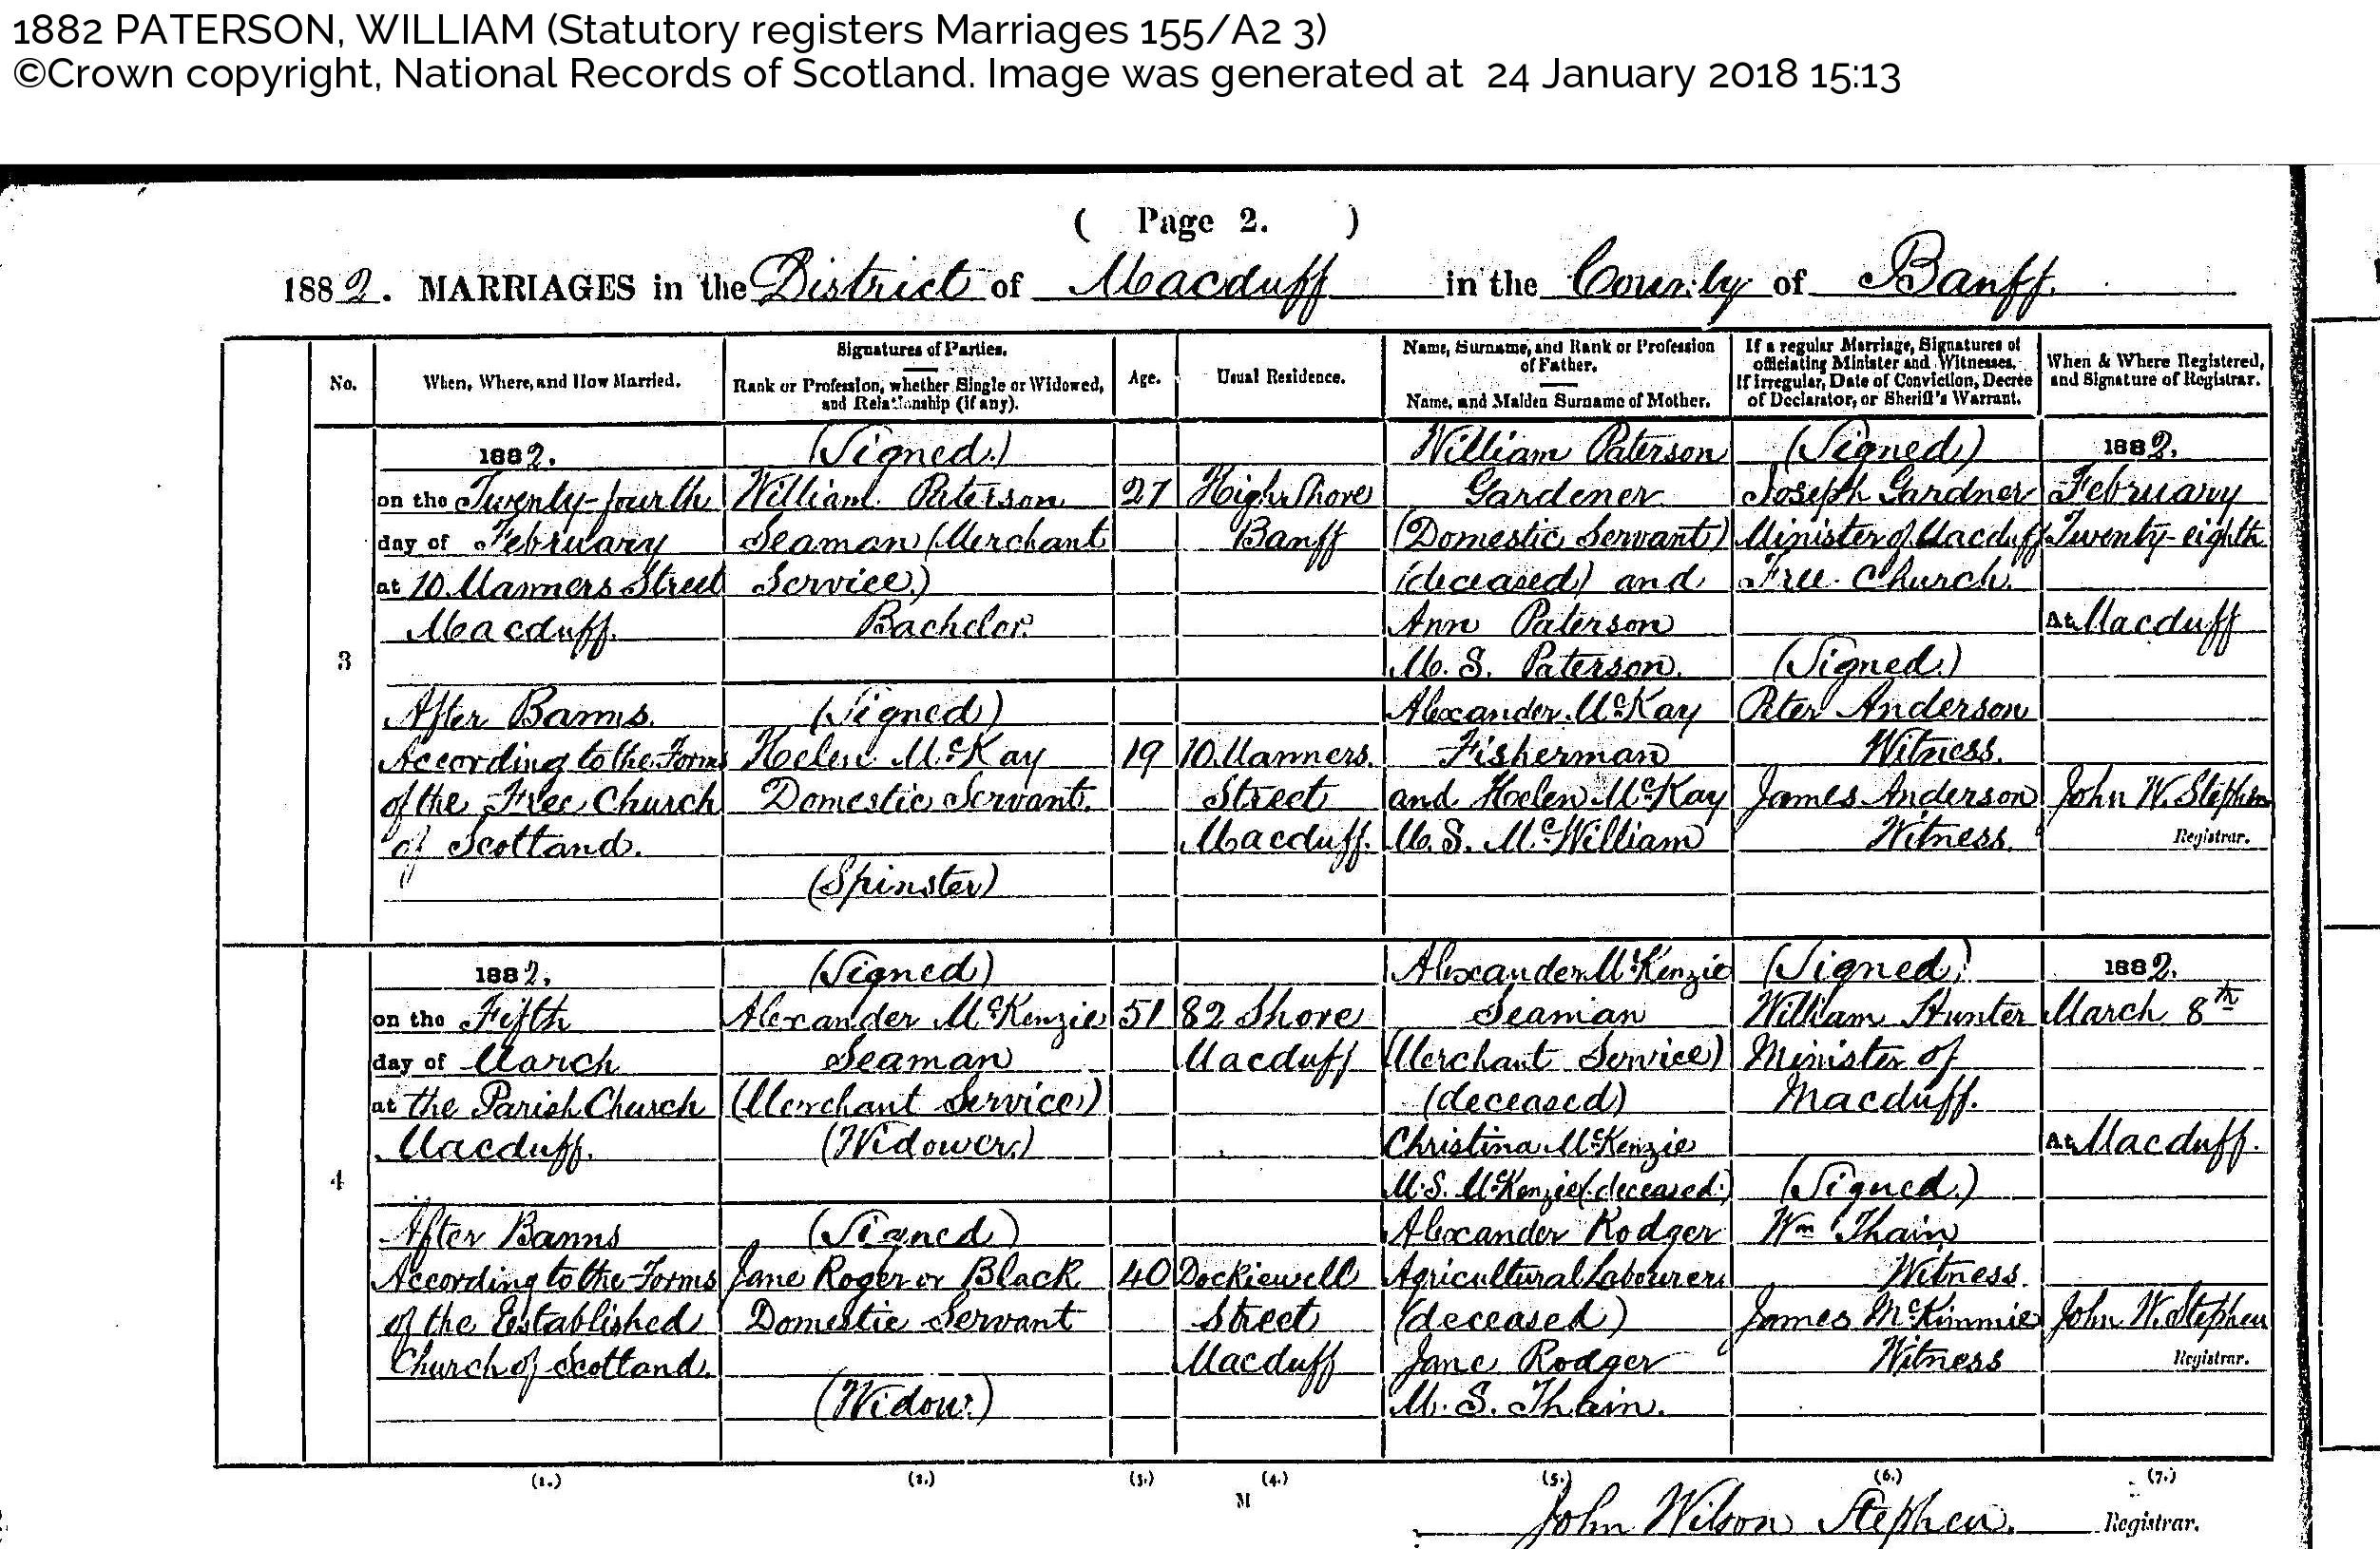 1882 PATERSON, WILLIAM (Statutory registers Marriages 155/A2 3)
©Crown copyright, National Records of Scotland. Image was generated at 24 January 2018 15:13
( Page 2. )
1882. MARRIAGES in the District of Macduff in the County of Banff.
No.
When, Where, and How Married.
Signatures of Parties.
Rank or Profession, whether Single or Widowed,
and Relationship (if any).
Age.
Usual Residence.
Name, Surname, and Rank or Profession
of Father.
Name, and Maiden Surname of Mother.
If a regular Marriage, Signatures of
officiating Minister and Witnesses.
If irregular, Date of Conviction, Decree
of Declarator, or Sheriff's Warrant.
When & Where Registered,
and Signature of Registrar.
3
1882.
on the Twenty-fourth
day of February
at 10 Manners Street
Macduff.
After Banns.
According to the Forms
of the Free Church
of Scotland.
(Signed.)
William Paterson
Seaman (Merchant
Service.)
Bachelor.
(Signed)
Helen McKay
Domestic Servant.
(Spinster)
27
19
High Shore
Banff
10. Manners.
Street
Macduff.
William Paterson
Gardener
(Domestic Servant)
(deceased) and
Ann Paterson
M. S. Paterson.
Alexander McKay
Fisherman
and Helen McKay
M. S. McWilliam
(Signed)
Joseph Gardner
Minister of Macduff
Free Church.
(Signed.)
Peter Anderson
Witness.
James Anderson
Witness.
1882.
February
Twenty-eighth
At Macduff
John W. Stephen
Registrar.
4
1882.
on the Fifth
day of March
at the Parish Church
Macduff.
After Banns
According to the Forms
of the Established
Church of Scotland.
(Signed)
Alexander McKenzie
Seaman
(Merchant Service)
(Widower.)
(Signed)
Jane Roger or Black
Domestic Servant
(Widow.)
51
40
82 Shore
Macduff
Dockiewell
Street
Macduff
Alexander McKenzie
Seaman
(Merchant Service)
(deceased)
Christina McKenzie
M. S. McKenzie (deceased.)
Alexander Rodger
Agricultural Labourer
(deceased)
Jane Rodger
M. S. Thain.
(Signed)
William Hunter
Minister of
Macduff.
(Signed.)
Wm Thain
Witness.
James McKimmie
Witness
1882.
March 8th
At Macduff.
John W. Stephen
Registrar.
(1.) (2.) (3.) (4.) (5.) (6.) (7.)
M
John Wilson Stephen. Registrar.